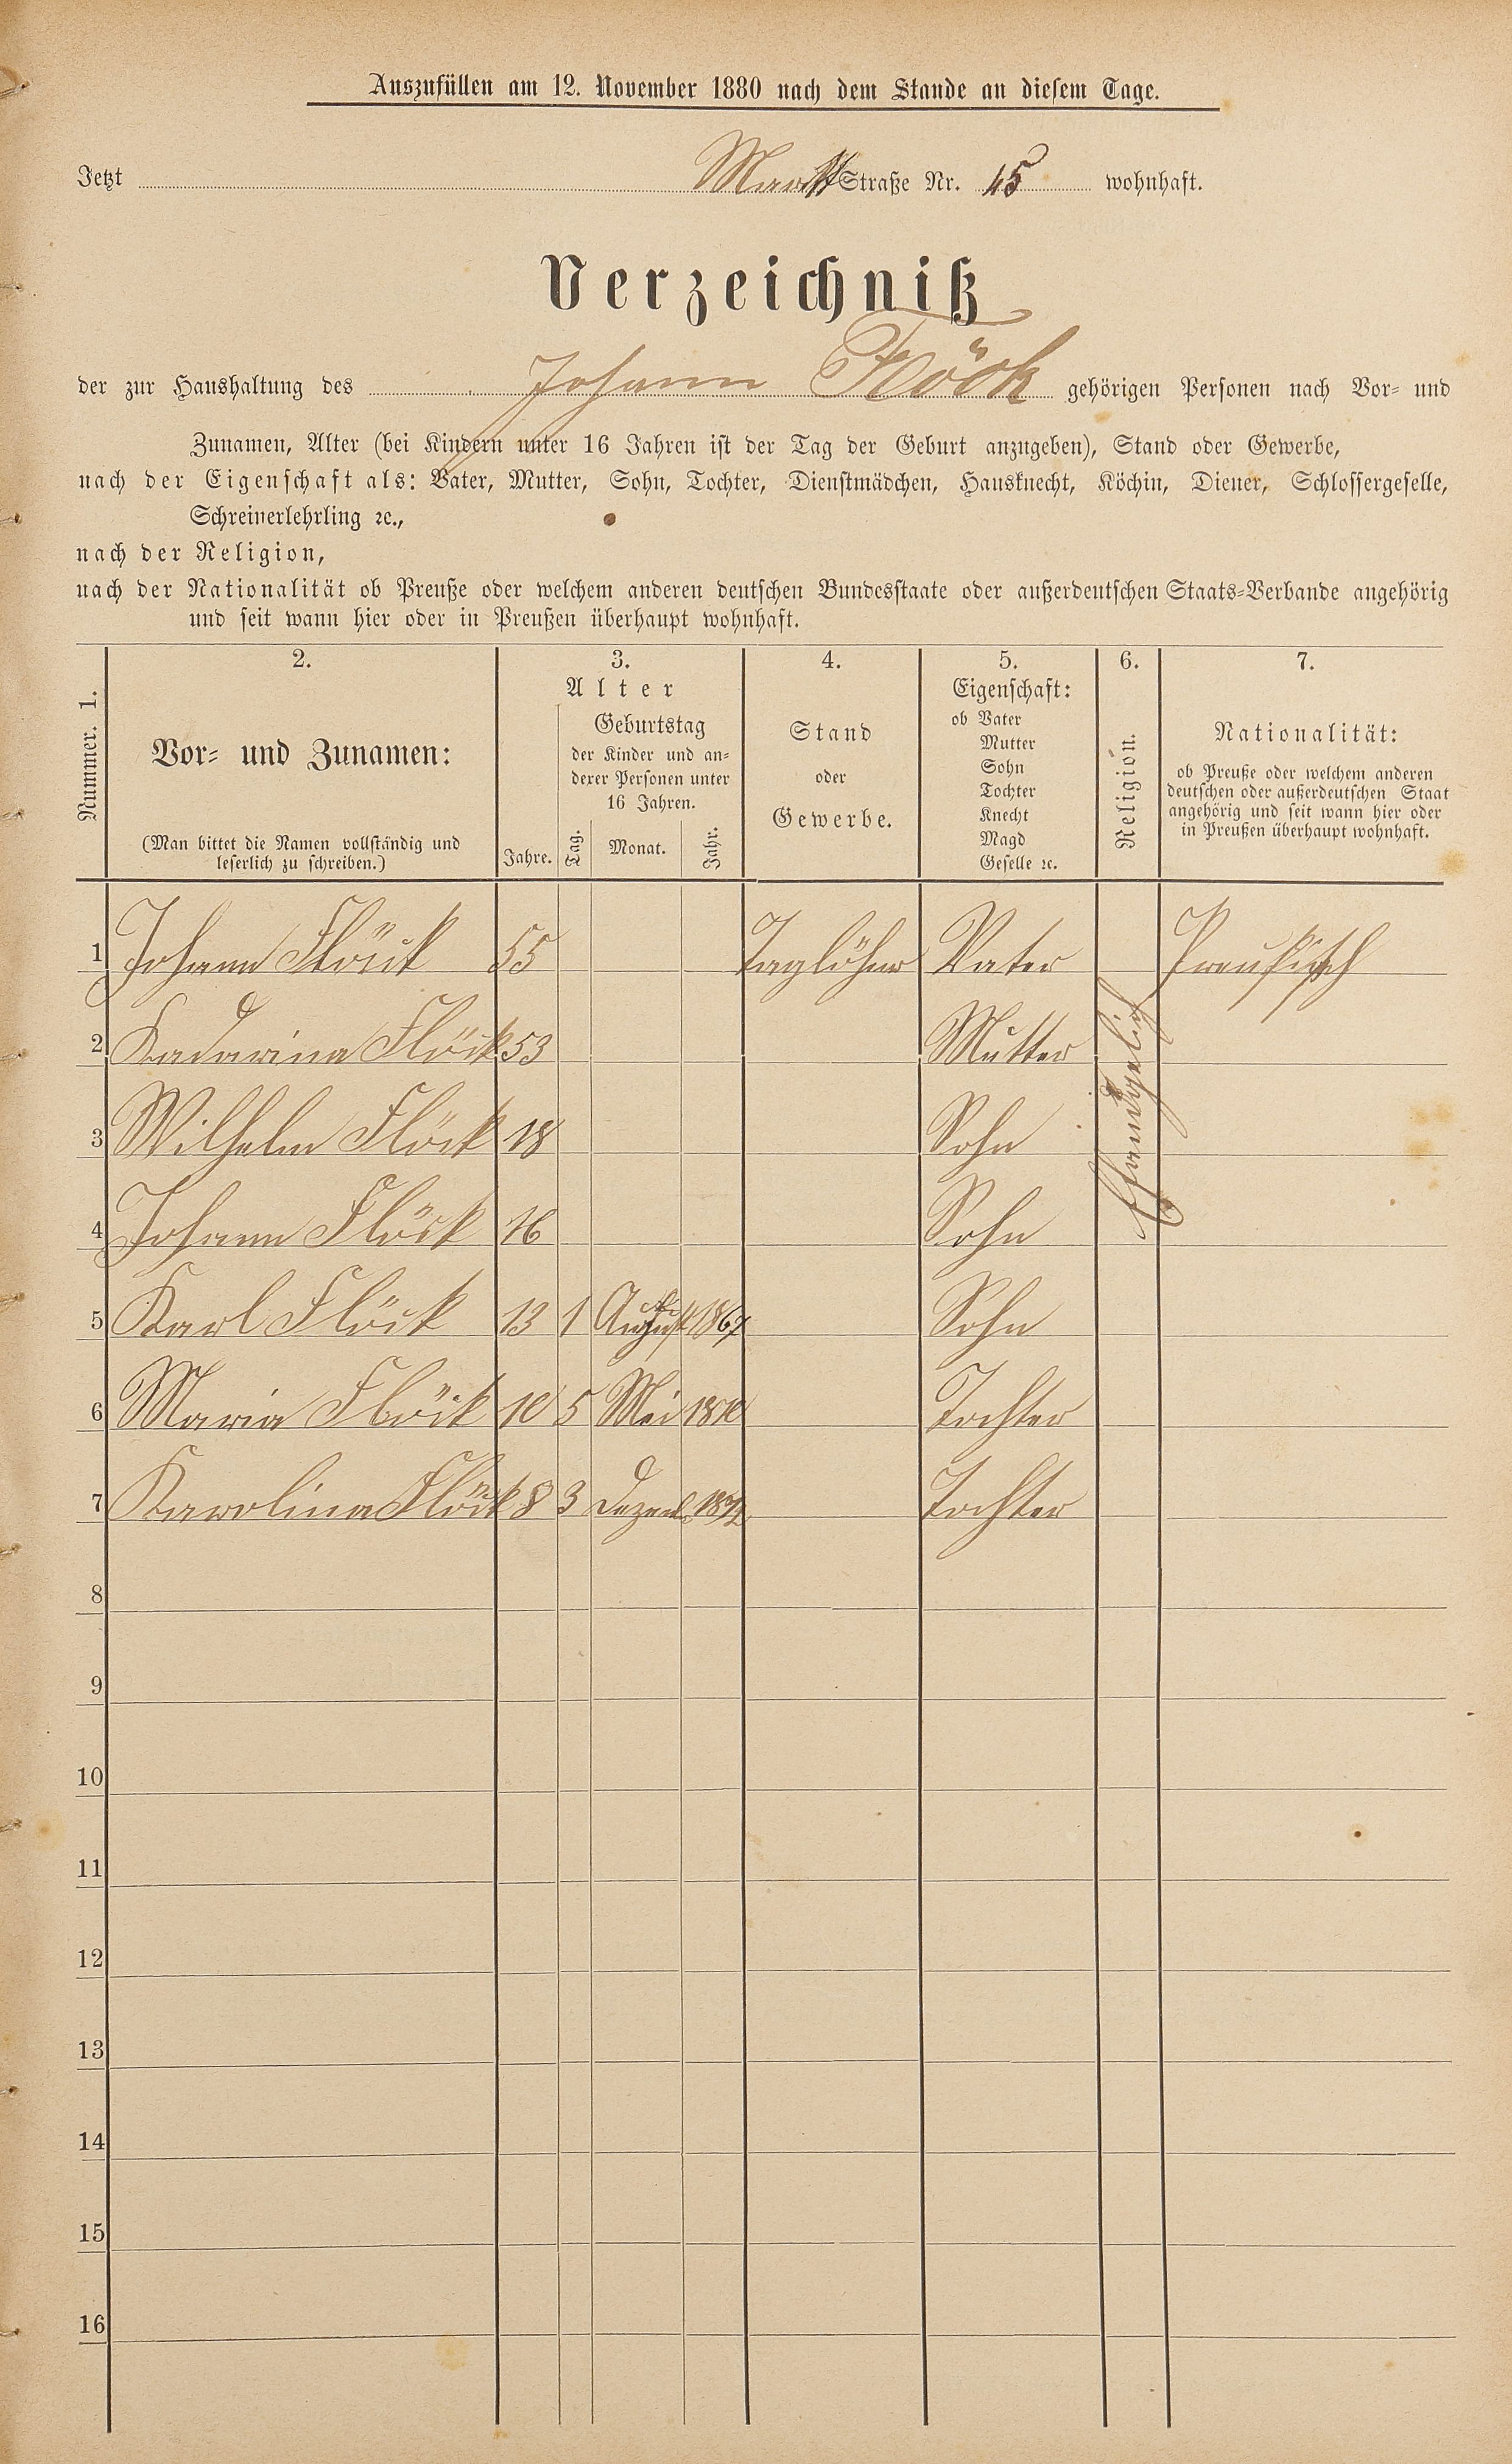 Auszufüllen am 12. November 1880 nach dem Stande an diesem Tage.
Jetzt Markt Straße Nr. 45 wohnhaft.
Verzeichniß
der zur Haushaltung des Johann Flöck gehörigen Personen nach Vor- und
Zunamen, Alter (bei Kindern unter 16 Jahren ist der Tag der Geburt anzugeben), Stand oder Gewerbe,
nach der Eigenschaft als: Vater, Mutter, Sohn, Tochter, Dienstmädchen, Hausknecht, Köchin, Diener, Schlossergeselle,
Schreinerlehrling ꝛc.,
nach der Religion,
nach der Nationalität ob Preuße oder welchem anderen deutschen Bundesstaate oder außerdeutschen Staats-Verbande angehörig
und seit wann hier oder in Preußen überhaupt wohnhaft.
Nummer. 1.
2.
Vor- und Zunamen:
(Man bittet die Namen vollständig und
leserlich zu schreiben.)
3.
Alter
Jahre.
Geburtstag
der Kinder und an-
derer Personen unter
16 Jahren.
Tag. Monat. Jahr.
4.
Stand
oder
Gewerbe.
5.
Eigenschaft:
ob Vater
Mutter
Sohn
Tochter
Knecht
Magd
Geselle ꝛc.
6.
Religion.
7.
Nationalität:
ob Preuße oder welchem anderen
deutschen oder außerdeutschen Staat
angehörig und seit wann hier oder
in Preußen überhaupt wohnhaft.
1 Johann Flöck 55 Taglöhner Vater Preußisch
2 Kadarina Flöck 53 Mutter
Efandgelich
3 Wilhelm Flöck 18 Sohn
4 Johann Flöck 16 Sohn
5 Karl Flöck 13 1 August 1867 Sohn
6 Maria Flöck 10 5 Mei 1870 Tochter
7 Karolina Flöck 8 3 Dezemb. 1872 Tochter
8
9
10
11
12
13
14
15
16